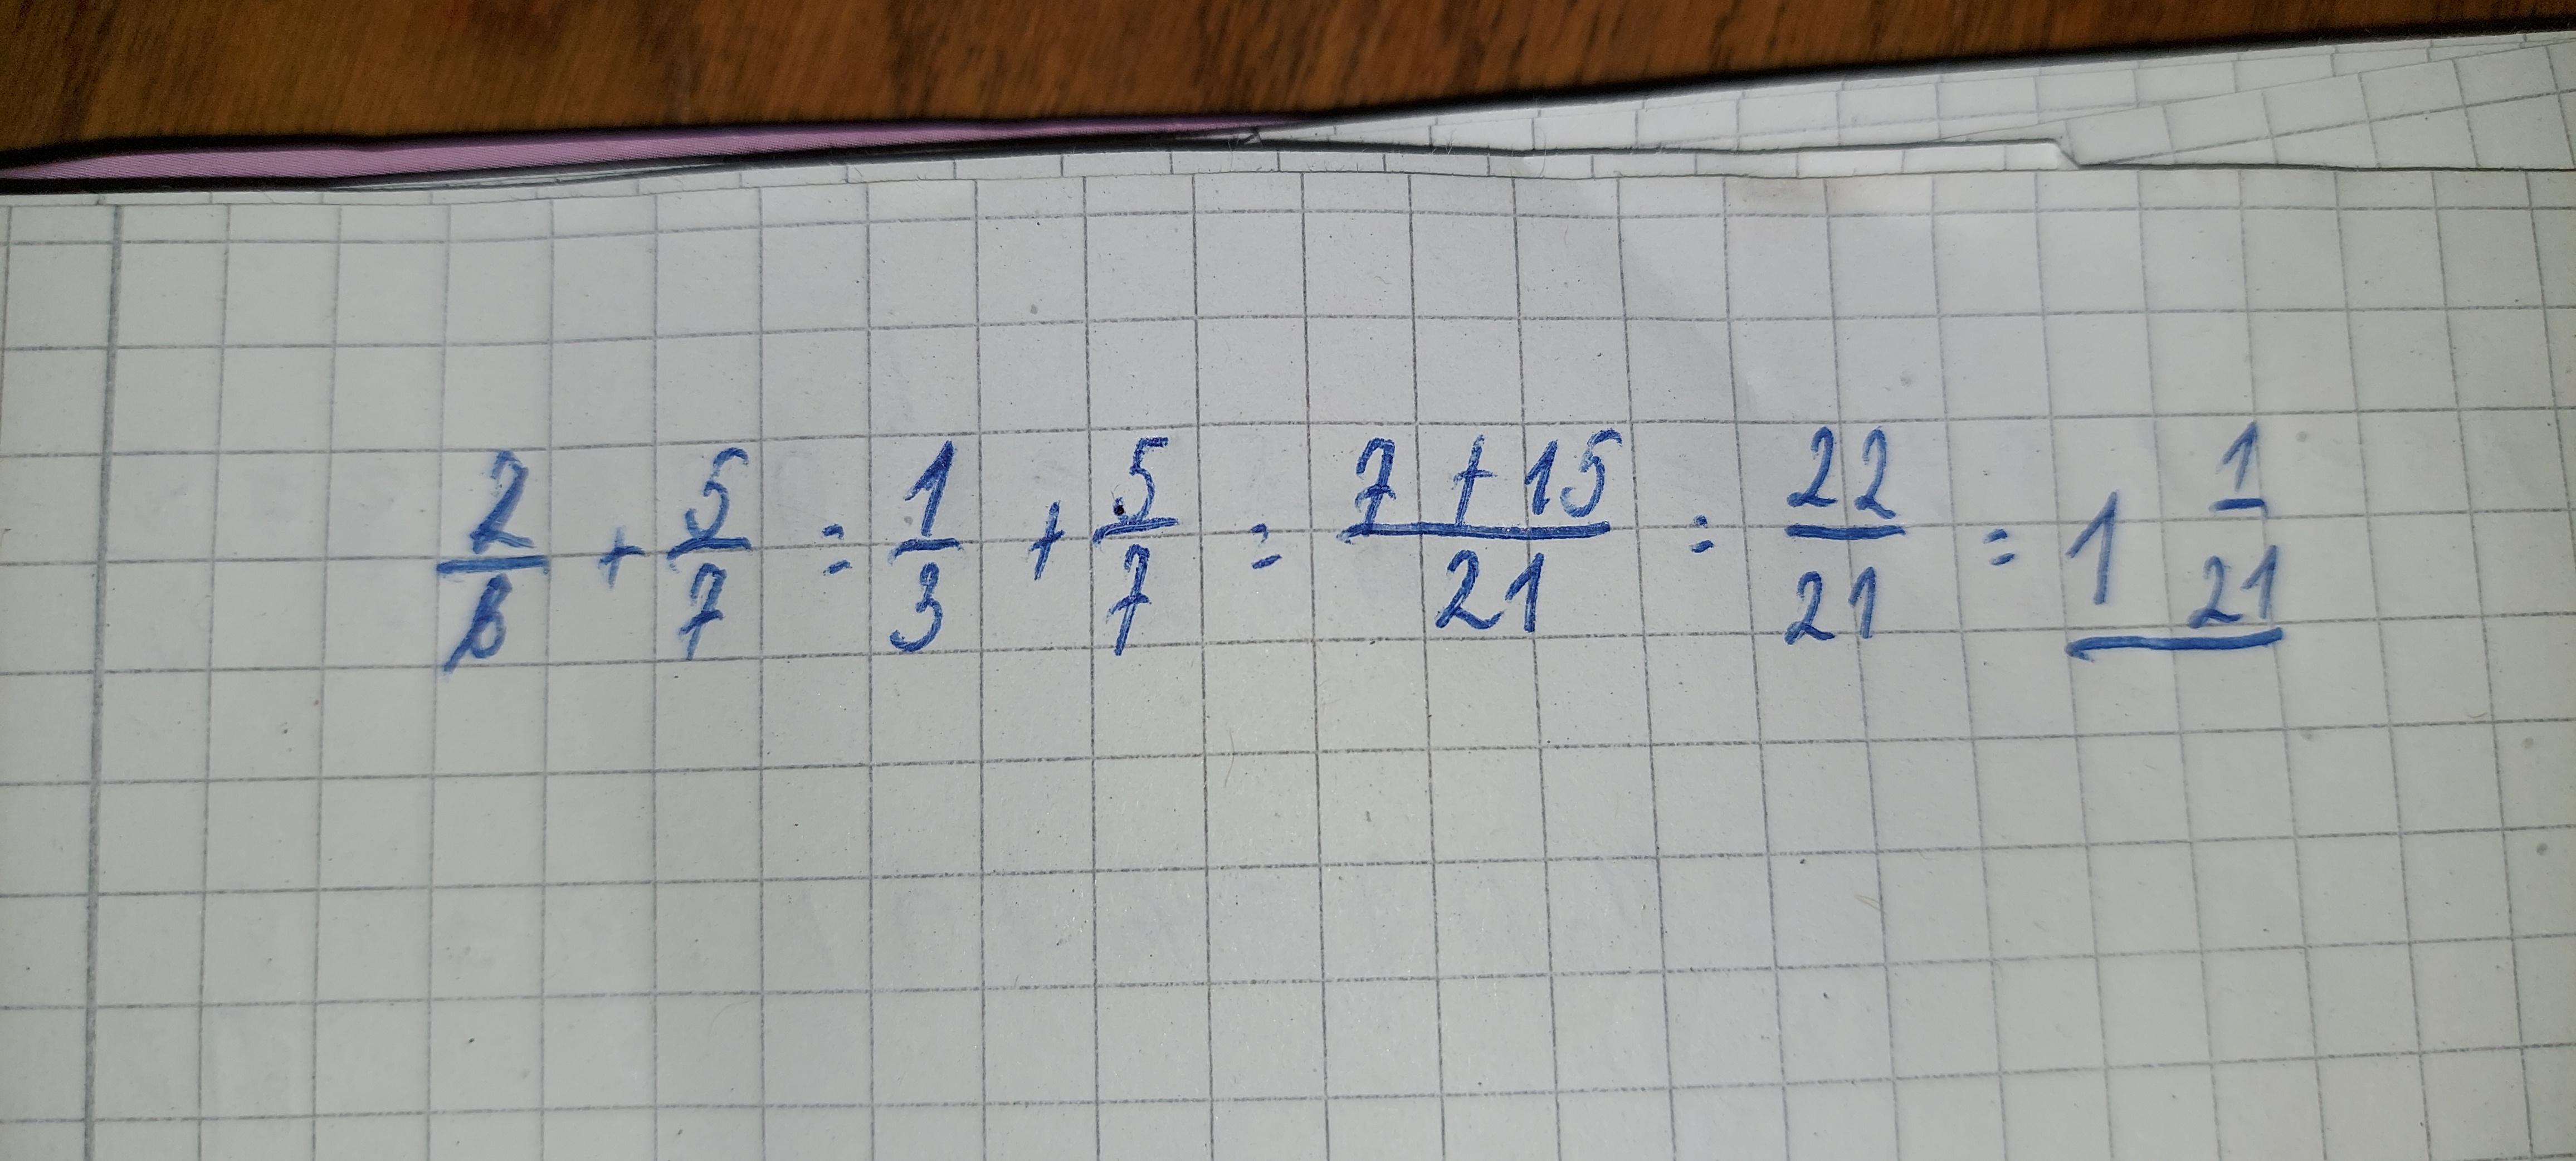 2/6 + 5/7 = 1/3 + 5/7 = (7 + 15)/21 = 22/21 = 1 1/21